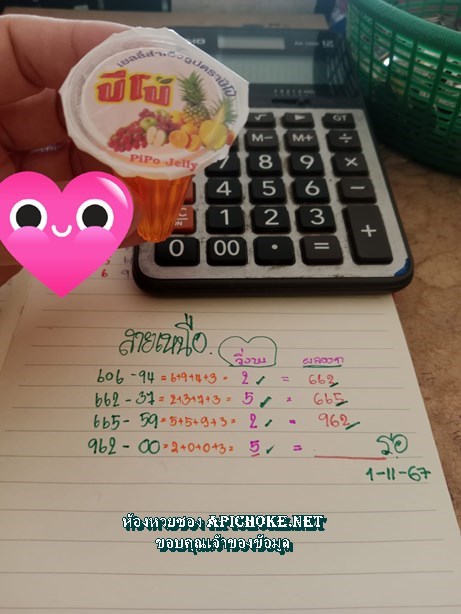 เยลลี่สำเร็จรูปตราปีโป้
ปีโป้
PiPo Jelly
√ ▶ GT
M- M+ ÷
7 8 9 ×
4 5 6 -
1 2 3 +
0 00 • =
สายเหนือ
วิ่งบน ผลออก
606 - 94 = 6+9+4+3 = 2 ✓ = 662
662 - 37 = 2+3+7+3 = 5 ✓ = 665
665 - 59 = 5+5+9+3 = 2 ✓ = 962
962 - 00 = 2+0+0+3 = 5 ✓ = ______ รอ
1-11-67
ห้องหวยซอง APICHOKE.NET
ขอบคุณเจ้าของข้อมูล